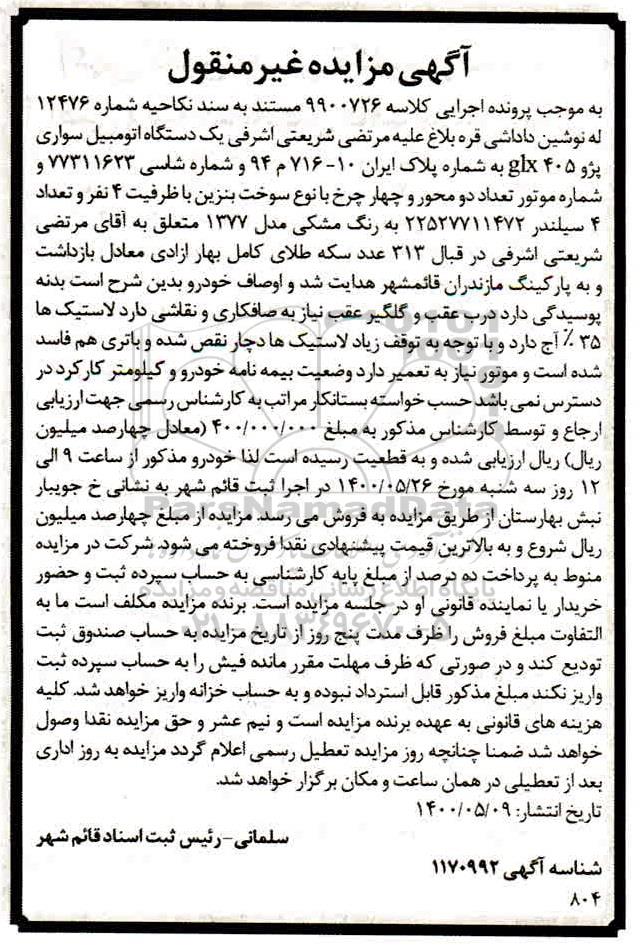 آگهی مزایده غیر منقول
به موجب پرونده اجرایی کلاسه ۹۹۰۰۷۲۶ مستند به سند نکاحیه شماره ۱۲۴۷۶
له نوشین داداشی قره بلاغ علیه مرتضی شریعتی اشرفی یک دستگاه اتومبیل سواری
پژو ۴۰۵ glx به شماره پلاک ایران ۱۰- ۷۱۶ م ۹۴ و شماره شاسی ۷۷۳۱۱۶۲۳ و
شماره موتور تعداد دو محور و چهار چرخ با نوع سوخت بنزین با ظرفیت ۴ نفر و تعداد
۴ سیلندر ۲۲۵۲۷۷۱۱۴۷۲ به رنگ مشکی مدل ۱۳۷۷ متعلق به آقای مرتضی
شریعتی اشرفی در قبال ۳۱۳ عدد سکه طلای کامل بهار ازادی معادل بازداشت
و به پارکینگ مازندران قائمشهر هدایت شد و اوصاف خودرو بدین شرح است بدنه
پوسیدگی دارد درب عقب و گلگیر عقب نیاز به صافکاری و نقاشی دارد لاستیک ها
۳۵ ٪ آج دارد و با توجه به توقف زیاد لاستیک ها دچار نقص شده و باتری هم فاسد
شده است و موتور نیاز به تعمیر دارد وضعیت بیمه نامه خودرو و کیلومتر کارکرد در
دسترس نمی باشد حسب خواسته بستانکار مراتب به کارشناس رسمی جهت ارزیابی
ارجاع و توسط کارشناس مذکور به مبلغ ۴۰۰/۰۰۰/۰۰۰ (معادل چهارصد میلیون
ریال) ریال ارزیابی شده و به قطعیت رسیده است لذا خودرو مذکور از ساعت ۹ الی
۱۲ روز سه شنبه مورخ ۱۴۰۰/۰۵/۲۶ در اجرا ثبت قائم شهر به نشانی خ جویبار
نبش بهارستان از طریق مزایده به فروش می رسد. مزایده از مبلغ چهارصد میلیون
ریال شروع و به بالاترین قیمت پیشنهادی نقدا فروخته می شود. شرکت در مزایده
منوط به پرداخت ده درصد از مبلغ پایه کارشناسی به حساب سپرده ثبت و حضور
خریدار یا نماینده قانونی او در جلسه مزایده است. برنده مزایده مکلف است ما به
التفاوت مبلغ فروش را ظرف مدت پنج روز از تاریخ مزایده به حساب صندوق ثبت
تودیع کند و در صورتی که ظرف مهلت مقرر مانده فیش را به حساب سپرده ثبت
واریز نکند مبلغ مذکور قابل استرداد نبوده و به حساب خزانه واریز خواهد شد. کلیه
هزینه های قانونی به عهده برنده مزایده است و نیم عشر و حق مزایده نقدا وصول
خواهد شد ضمنا چنانچه روز مزایده تعطیل رسمی اعلام گردد مزایده به روز اداری
بعد از تعطیلی در همان ساعت و مکان برگزار خواهد شد.
تاریخ انتشار: ۱۴۰۰/۰۵/۰۹
سلمانی- رئیس ثبت اسناد قائم شهر
شناسه آگهی ۱۱۷۰۹۹۲
۸۰۴
ParsNamadData
پایگاه اطلاع رسانی مناقصه و مزایده
۰۲۱-۸۸۳۴۹۶۷۰-۵